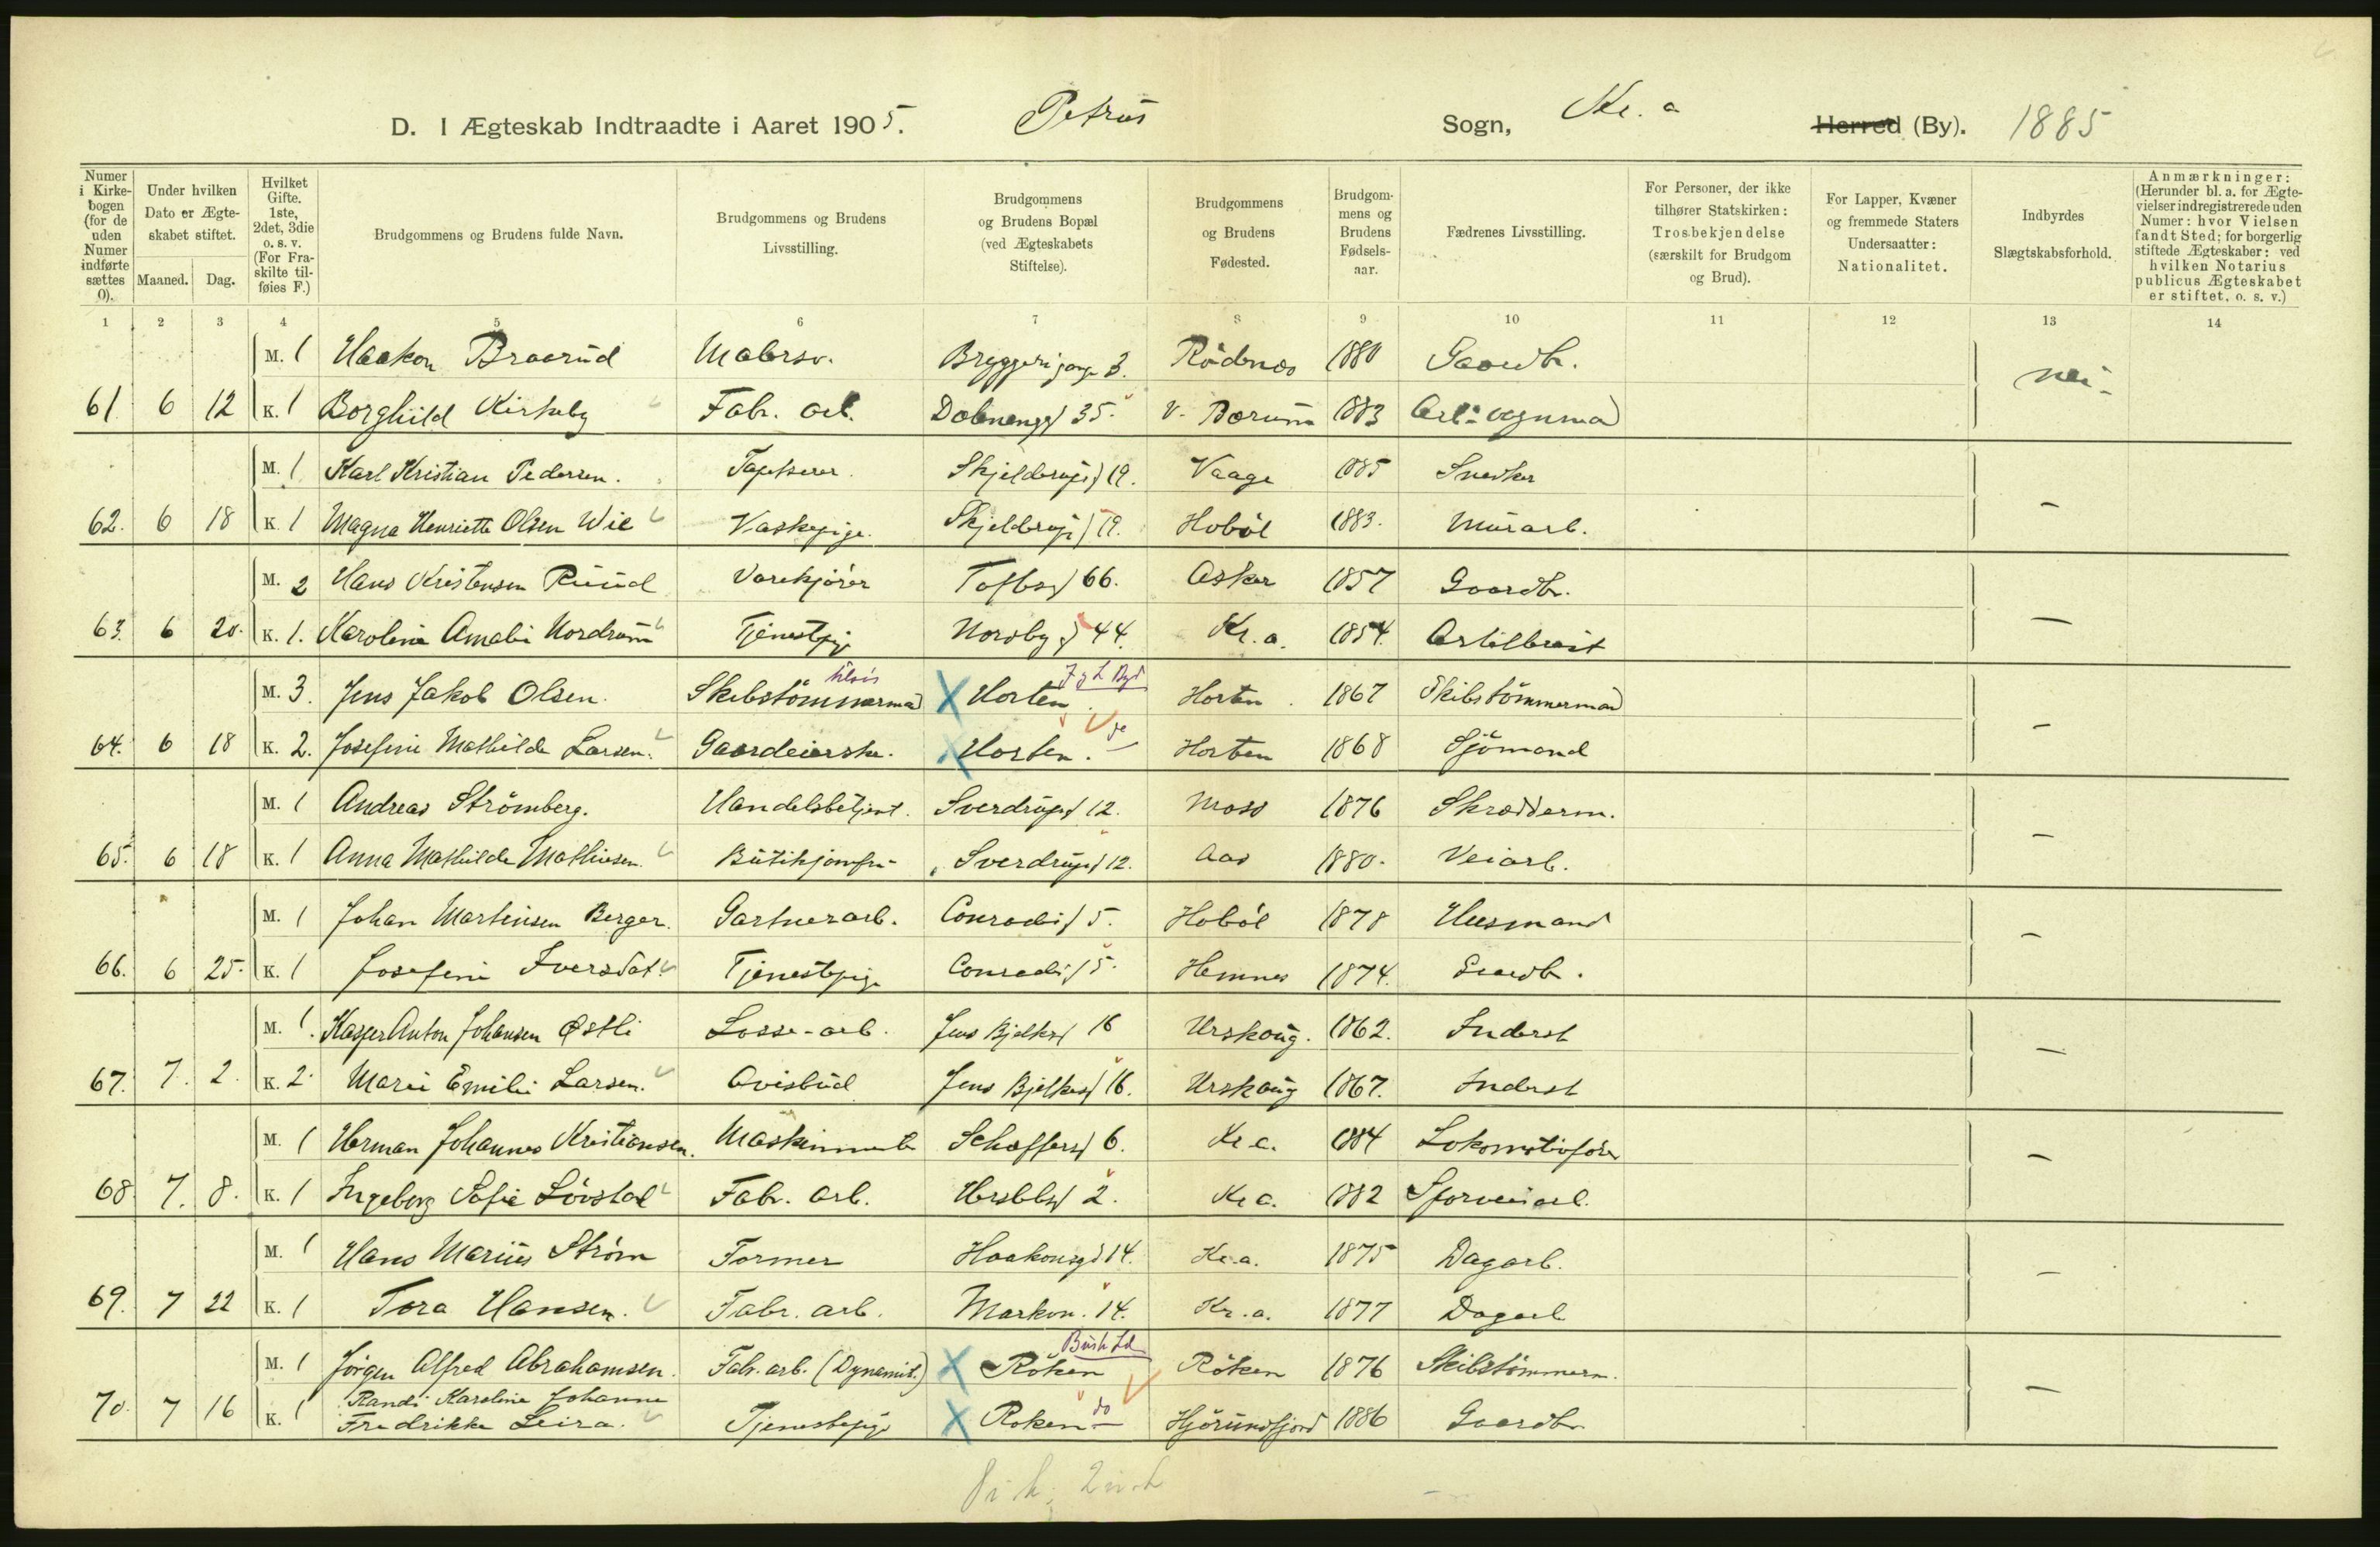 D. I Ægteskab Indtraadte i Aaret 1905. Petrus Sogn, Kr. a Herred (By). 1885
Numer i Kirkebogen (for de uden Numer indførte sættes 0).
Under hvilken Dato er Ægteskabet stiftet.
Maaned. Dag.
Hvilket Gifte. 1ste, 2det, 3die o. s. v. (For Fraskilte tilføies F.)
Brudgommens og Brudens fulde Navn.
Brudgommens og Brudens Livsstilling.
Brudgommens og Brudens Bopæl (ved Ægteskabets Stiftelse).
Brudgommens og Brudens Fødested.
Brudgommens og Brudens Fødselsaar.
Fædrenes Livsstilling.
For Personer, der ikke tilhører Statskirken: Trosbekjendelse (særskilt for Brudgom og Brud).
For Lapper, Kvæner og fremmede Staters Undersaatter: Nationalitet.
Indbyrdes Slægtskabsforhold.
Anmærkninger: (Herunder bl. a. for Ægtevielser indregistrerede uden Numer: hvor Vielsen fandt Sted; for borgerlig stiftede Ægteskaber: ved hvilken Notarius publicus Ægteskabet er stiftet, o. s. v.)
1 2 3 4 5 6 7 8 9 10 11 12 13 14
M. 1 Haakon Braarud Malersv. Bryggerigang 3. Rödnes 1880 Gaardbr. nei-
61 6 12 K. 1 Borghild Kirkeby Fabr. arb. Dalenengg 35. V. Bærum 1883
M. 1 Karl Kristian Pedersen. Tapetserer. Skjeldrupsg 19. Vaage 1885 Snedker
62. 6 18 K. 1 Magna Henriette Olsen Wie Vaskepige. Skjeldrupsg 19. Hoböl 1883. Murarb. -
M. 2 Hans Kristensen Ruud Varekjörer Toftesg 66. Asker 1857 Gaardbr.
63. 6 20. K. 1. Karoline Amalie Nordrum Tjenestpig Nordbyg 44. Kr. a. 1854. Artilleriist -
M. 3. Jens Jakob Olsen. Skibstömmermad X Horten. Horten. 1867 Skibstömmermand
64. 6 18 K. 2. Josefine Mathilde Larsen. Gaardeierske. X Horten. Horten 1868 Sjömand -
M. 1 Andreas Strömberg. Handelsbetjent. Sverdrupsg 12. Moss 1876 Skrædderm.
65. 6 18 K. 1 Anna Mathilde Mathiesen. Butikjomfru Sverdrupsg 12. Aas 1880. Veiarb. -
M. 1 Johan Martinsen Berger. Gartnerarb. Conradisg 5. Hoböl 1878 Husmand
66. 6 25. K. 1 Josefine Iversdat. Tjenestepige Conradisg 5. Hemnes 1874. Gaardbr. -
M. 1. Kasper Anton Johansen Østli Losse-arb. Jens Bjelkesg 16 Urskoug. 1862. Inderst
67. 7. 2. K. 2. Marie Emilie Larsen. Avisbud Jens Bjelkesg 16. Urskoug 1867. Inderst -
M. 1 Herman Johannes Kristiansen. Schæffersg 6. Kr a. 1884 Lokomotivförer
68 7. 8. K. 1 Ingeborg Sofie Lövstad Fabr. arb. Herslebsg 2. Kr a. 1882 Sporveiarb. -
M. 1 Hans Marius Ström Former Haakonsgd 14. Kr. a. 1875 Dagarb.
69. 7 22 K. 1 Tora Hansen. Fabr. arb. Markvn. 14. Kr. a. 1877 Dagarb -
M. 1 Jörgen Alfred Abrahamsen. Fabr. arb. (Dynamit.) X Röken Busk Ld Röken 1876 Skibstömmerm.
Randi Karoline Johanne
70. 7 16 K. 1 Fredrikke Leira. Tjenestepige X Röken do Hjörundfjord 1886 Gaardbr -